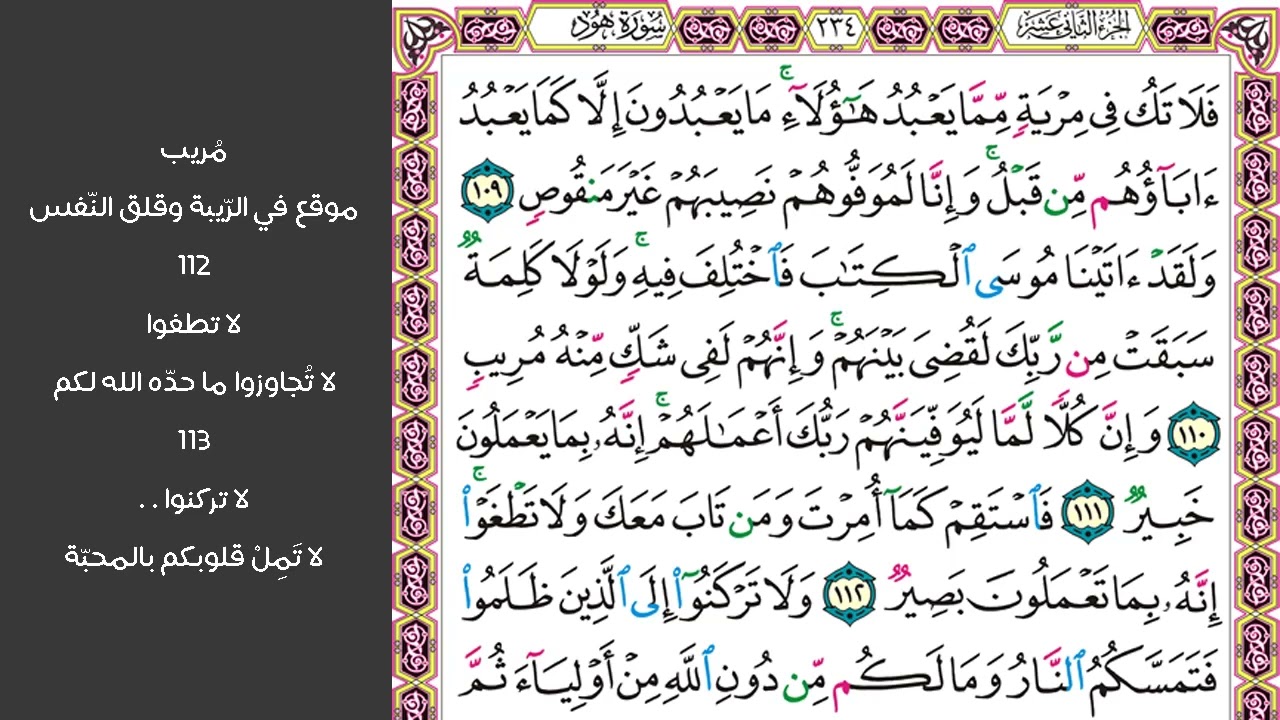 الجزء الثاني عشر
٢٣٤
سورة هود
فَلَا تَكُ فِي مِرْيَةٍ مِّمَّا يَعْبُدُ هَٰٓؤُلَآءِ ۚ مَا يَعْبُدُونَ إِلَّا كَمَا يَعْبُدُ
ءَابَآؤُهُم مِّن قَبْلُ ۚ وَإِنَّا لَمُوَفُّوهُمْ نَصِيبَهُمْ غَيْرَ مَنقُوصٍ ١٠٩
وَلَقَدْ ءَاتَيْنَا مُوسَى ٱلْكِتَٰبَ فَٱخْتُلِفَ فِيهِ ۚ وَلَوْلَا كَلِمَةٌ
سَبَقَتْ مِن رَّبِّكَ لَقُضِىَ بَيْنَهُمْ ۚ وَإِنَّهُمْ لَفِى شَكٍّ مِّنْهُ مُرِيبٍ
١١٠ وَإِنَّ كُلًّا لَّمَّا لَيُوَفِّيَنَّهُمْ رَبُّكَ أَعْمَٰلَهُمْ ۚ إِنَّهُۥ بِمَا يَعْمَلُونَ
خَبِيرٌ ١١١ فَٱسْتَقِمْ كَمَآ أُمِرْتَ وَمَن تَابَ مَعَكَ وَلَا تَطْغَوْا۟ ۚ
إِنَّهُۥ بِمَا تَعْمَلُونَ بَصِيرٌ ١١٢ وَلَا تَرْكَنُوٓا۟ إِلَى ٱلَّذِينَ ظَلَمُوا۟
فَتَمَسَّكُمُ ٱلنَّارُ وَمَا لَكُم مِّن دُونِ ٱللَّهِ مِنْ أَوْلِيَآءَ ثُمَّ
مُريب
موقع في الرّيبة وقلق النّفس
112
لا تطغوا
لا تُجاوزوا ما حدّه الله لكم
113
لا تركنوا . .
لا تَمِلْ قلوبكم بالمحبّة